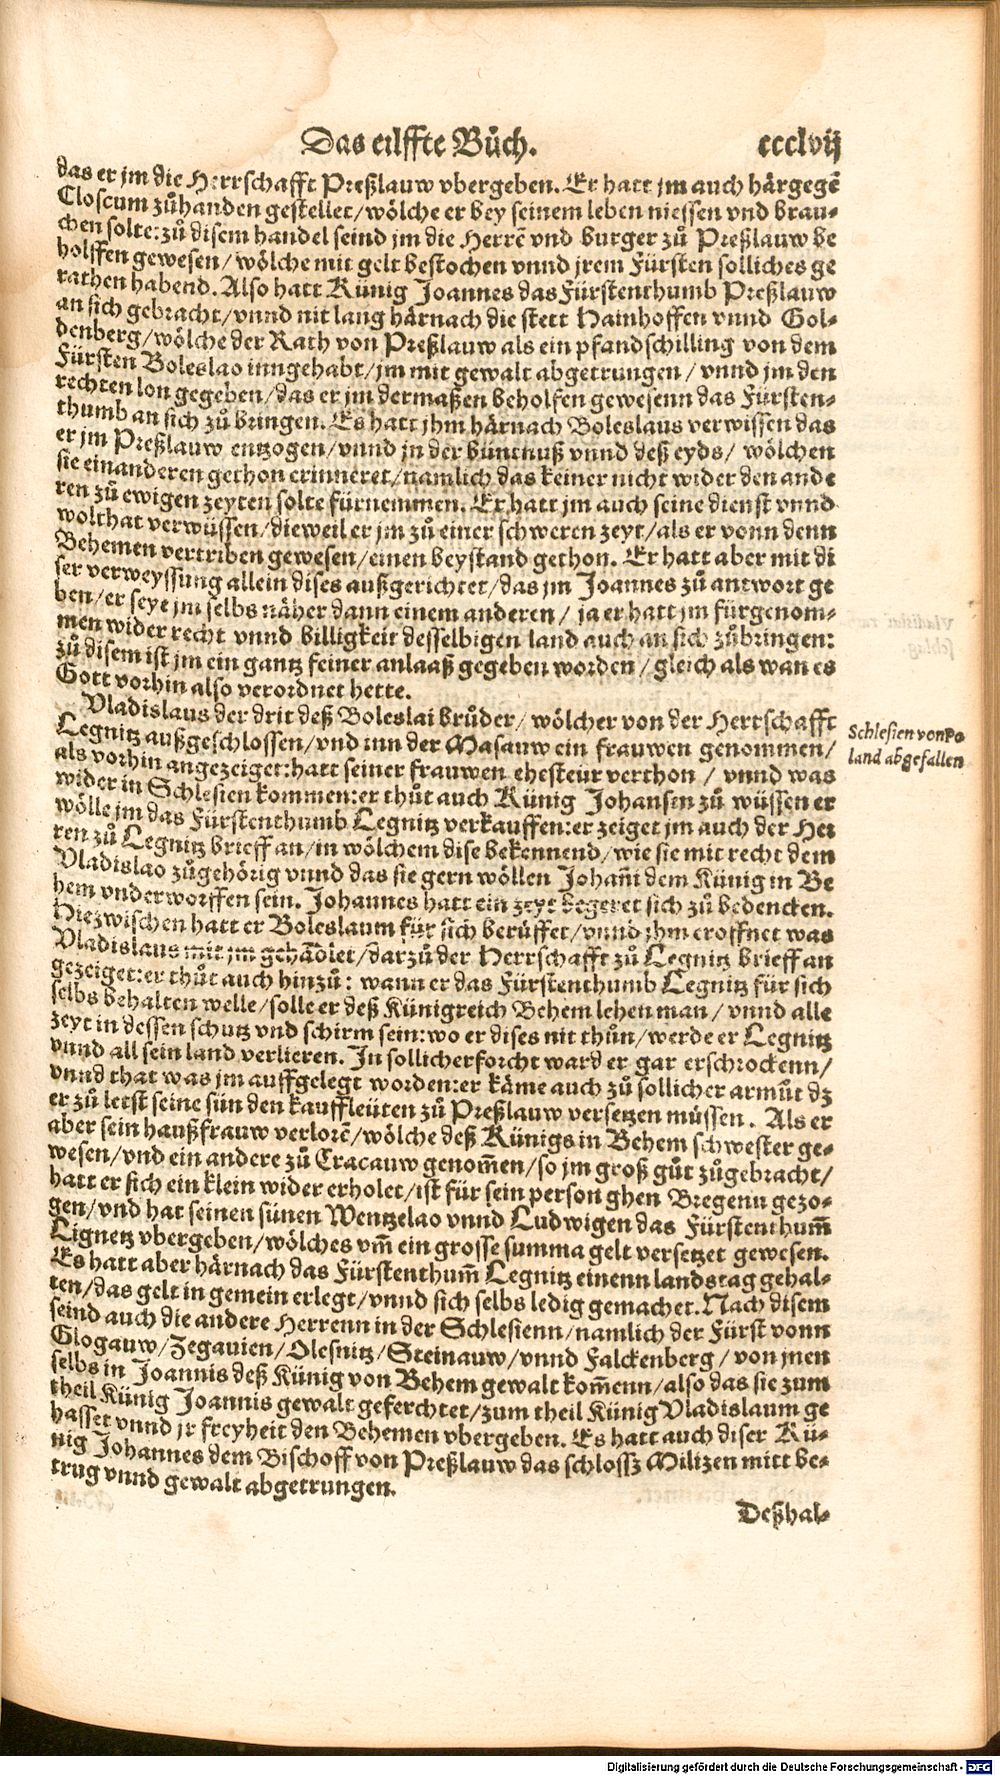 Das eilffte Bůch. ccclvij
das er jm die Herrschafft Preßlauw vbergeben. Er hatt jm auch härgegē
Closcum zůhanden gestellet/wölche er bey seinem leben niessen vnd brau⸗
chen solte: zů disem handel seind jm die Herrē vnd burger zů Preßlauw be
holffen gewesen/wölche mit gelt bestochen vnnd jrem Fürsten solliches ge
rathen habend. Also hatt Künig Joannes das Fürstenthumb Preßlauw
an sich gebracht/vnnd nit lang härnach die stett Hainhoffen vnnd Gol⸗
denberg/wölche der Rath von Preßlauw als ein pfandschilling von dem
Fürsten Boleslao inngehabt/jm mit gewalt abgetrungen/vnnd jm den
rechten lon gegeben/das er jm dermaßen beholfen gewesenn das Fürsten⸗
thumb an sich zů bringen. Es hatt jhm härnach Boleslaus verwissen das
er jm Preßlauw entzogen/vnnd jn der büntnuß vnnd deß eyds/wölchen
sie einanderen gethon erinneret/namlich das keiner nicht wider den ande
ren zů ewigen zeyten solte fürnemmen. Er hatt jm auch seine dienst vnnd
wolthat verwüssen/dieweil er jm zů einer schweren zeyt/als er vonn denn
Behemen vertriben gewesen/einen beystand gethon. Er hatt aber mit di
ser verweyssung allein dises außgerichtet/das jm Joannes zů antwort ge
ben/er seye jm selbs näher dann einem anderen/ja er hatt jm fürgenom⸗
men wider recht vnnd billigkeit desselbigen land auch an sich zůbringen:
zů disem ist jm ein gantz feiner anlaaß gegeben worden/gleich als wan es
Gott vorhin also verordnet hette.
Vladislaus der drit deß Boleslai brůder/wölcher von der Herrschafft
Legnitz außgeschlossen/vnd inn der Masauw ein frauwen genommen/
als vorhin angezeiget: hatt seiner frauwen ehesteür verthon/vnnd was
wider in Schlesien kommen: er thůt auch Künig Johansen zů wüssen er
wölle jm das Fürstenthumb Legnitz verkauffen: er zeiget jm auch der Her
ren zů Legnitz brieff an/in wölchem dise bekennend/wie sie mit recht dem
Vladislao zůgehörig vnnd das sie gern wöllen Johañi dem Künig in Be
hem vnderworffen sein. Johannes hatt ein zeyt begeret sich zů bedencken.
Hiezwischen hatt er Boleslaum für sich berüffet/vnnd jhm eroffnet was
Vladislaus mit jm gehādlet/darzů der Herrschafft zů Legnitz brieff an
gezeiget: er thůt auch hinzů: wann er das Fürstenthumb Legnitz für sich
selbs behalten welle/solle er deß Künigreich Behem lehen man/vnnd alle
zeyt in dessen schutz vnd schirm sein: wo er dises nit thůn/werde er Legnitz
vnnd all sein land verlieren. In sollicher forcht ward er gar erschrockenn/
vnnd that was jm auffgelegt worden: er käme auch zů sollicher armůt dz
er zů letst seine sün den kauffleüten zů Preßlauw versetzen müssen. Als er
aber sein haußfrauw verlorē/wölche deß Künigs in Behem schwester ge⸗
wesen/vnd ein andere zů Cracauw genom̄en/so jm groß gůt zůgebracht/
hatt er sich ein klein wider erholet/ist für sein person ghen Bregenn gezo⸗
gen/vnd hat seinen sünen Wentzelao vnnd Ludwigen das Fürstenthum̄
Lignetz vbergeben/wölches vm̄ ein grosse summa gelt versetzet gewesen.
Es hatt aber härnach das Fürstenthum̄ Legnitz einenn landstag gehal⸗
ten/das gelt in gemein erlegt/vnnd sich selbs ledig gemachet. Nach disem
seind auch die andere Herrenn in der Schlesienn/namlich der Fürst vonn
Glogauw/Zegauien/Olesnitz/Steinauw/vnnd Falckenberg/von jnen
selbs in Joannis deß Künig von Behem gewalt kom̄enn/also das sie zum
theil Künig Joannis gewalt geferchtet/zum theil Künig Vladislaum ge
hasset vnnd jr freyheit den Behemen vbergeben. Es hatt auch diser Kü⸗
nig Johannes dem Bischoff von Preßlauw das schlossz Militzen mitt be⸗
trug vnnd gewalt abgetrungen.
Deßhal⸗
Schlesien von Po
land abgefallen
Digitalisierung gefördert durch die Deutsche Forschungsgemeinschaft - DFG